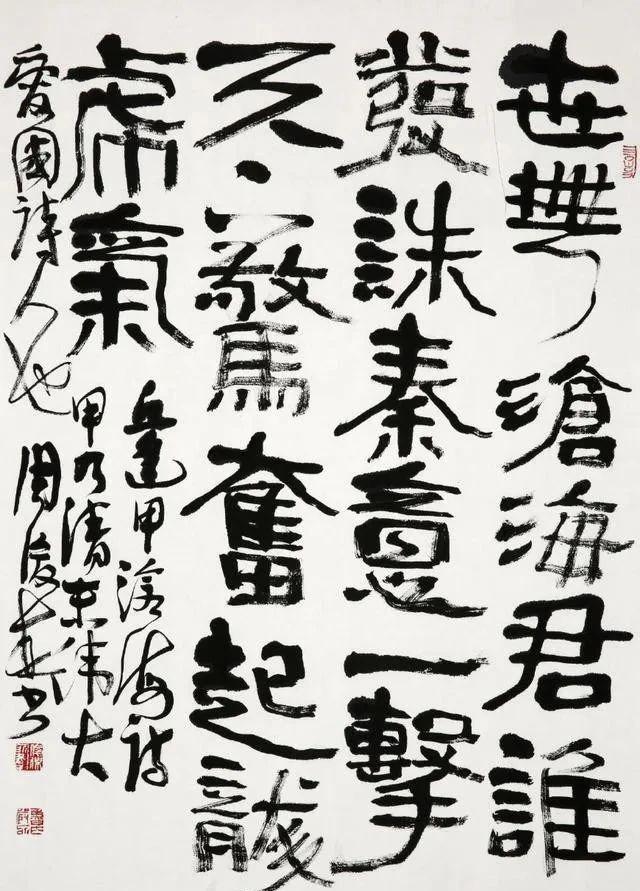 世無滄海君誰
發誅秦意一擊
天下驚奮起龍
虎氣
丘逢甲滄海詩
甲乃清末偉大
愛國詩人也 周俊杰书